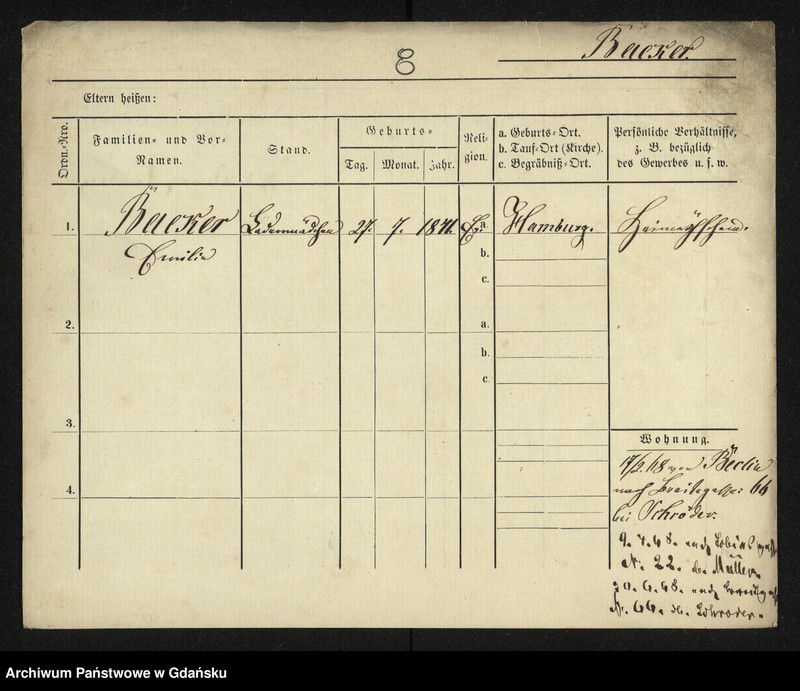 8
Baeker.
Eltern heißen:
Ordn.-Nro.
Familien- und Vor-
Namen.
Stand.
Geburts-
Tag. Monat. Jahr.
Reli-
gion.
a. Geburts-Ort.
b. Tauf-Ort (Kirche).
c. Begräbniß-Ort.
Persönliche Verhältnisse,
z. B. bezüglich
des Gewerbes u. s. w.
1. Baeker Ladenmädchen 27. 7. Ev. a. Hamburg. Heimathschein.
Emilie
b.
c.
2. a.
b.
c.
3.
4.
Wohnung.
von Berlin
nach Breitegasse 66
bei Schröder.
9. 4. 68. nach
N. 22. be. Müller.
30. 6. 68. nach
N. 66. be. Schroder.
Archiwum Państwowe w Gdańsku